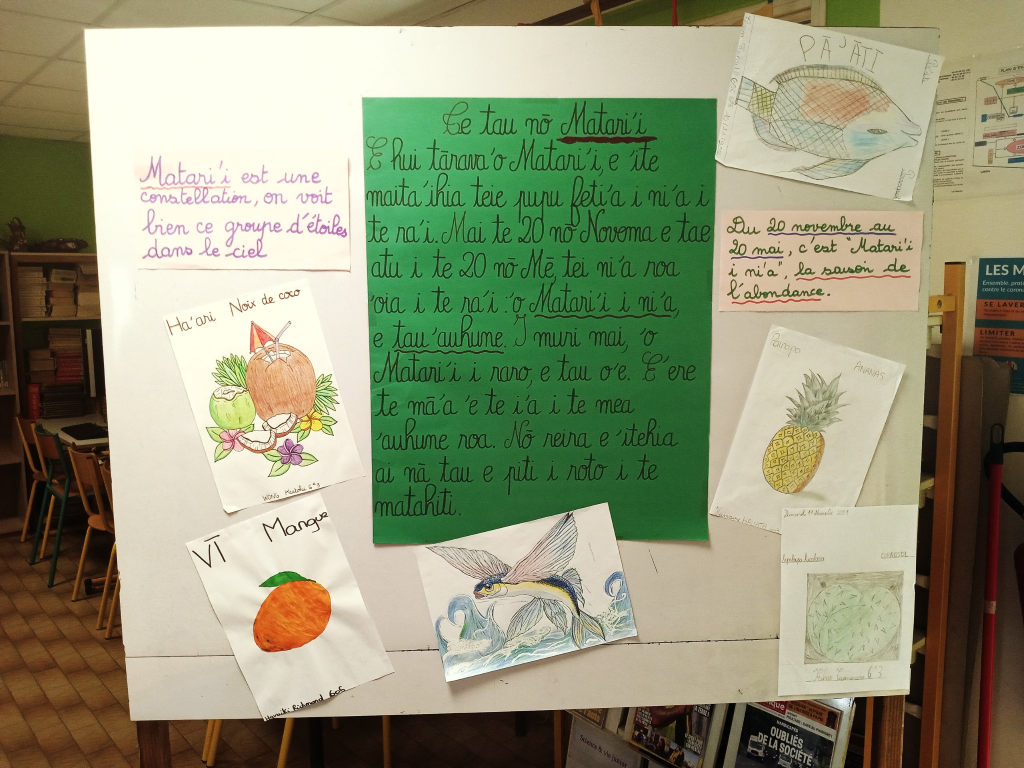 Te tau nō Matari'i
E hui tārava'o Matari'i, e 'ite
maita'ihia teie pupu feti'a i ni'a i
te ra'i. Mai te 20 nō Novema e tae
atu i te 20 nō Mē, tei ni'a roa
'oia i te ra'i: 'o Matari'i i ni'a,
e tau 'auhune. I muri mai, 'o
Matari'i i raro, e tau o'e. E'ere
te mā'a 'e te i'a i te mea
'auhume roa. Nō reira e 'itehia
ai nā tau e piti i roto i te
matahiti.
Matari'i est une
constellation, on voit
bien ce groupe d'étoiles
dans le ciel
Du 20 novembre au
20 mai, c'est "Matari'i
i ni'a", la saison de
l'abondance.
PĀ'ATI
Ha'ari Noix de coco
WONG
6°3
VĪ Mangue
ANANAS
COROSSOL
6°3
LES M
SE LAVER
LIMITER
OUBLIÉS
DE LA SOCIÉTÉ